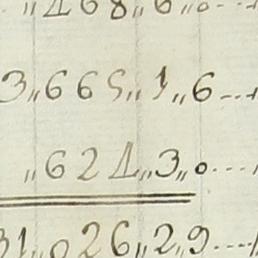 „ 468 „ 6 „ 0 ...
3 „ 665 „ 1 „ 6 ...
„ 624 „ 3 „ 0 ....
31 „ 026 „ 2 „ 9 ....